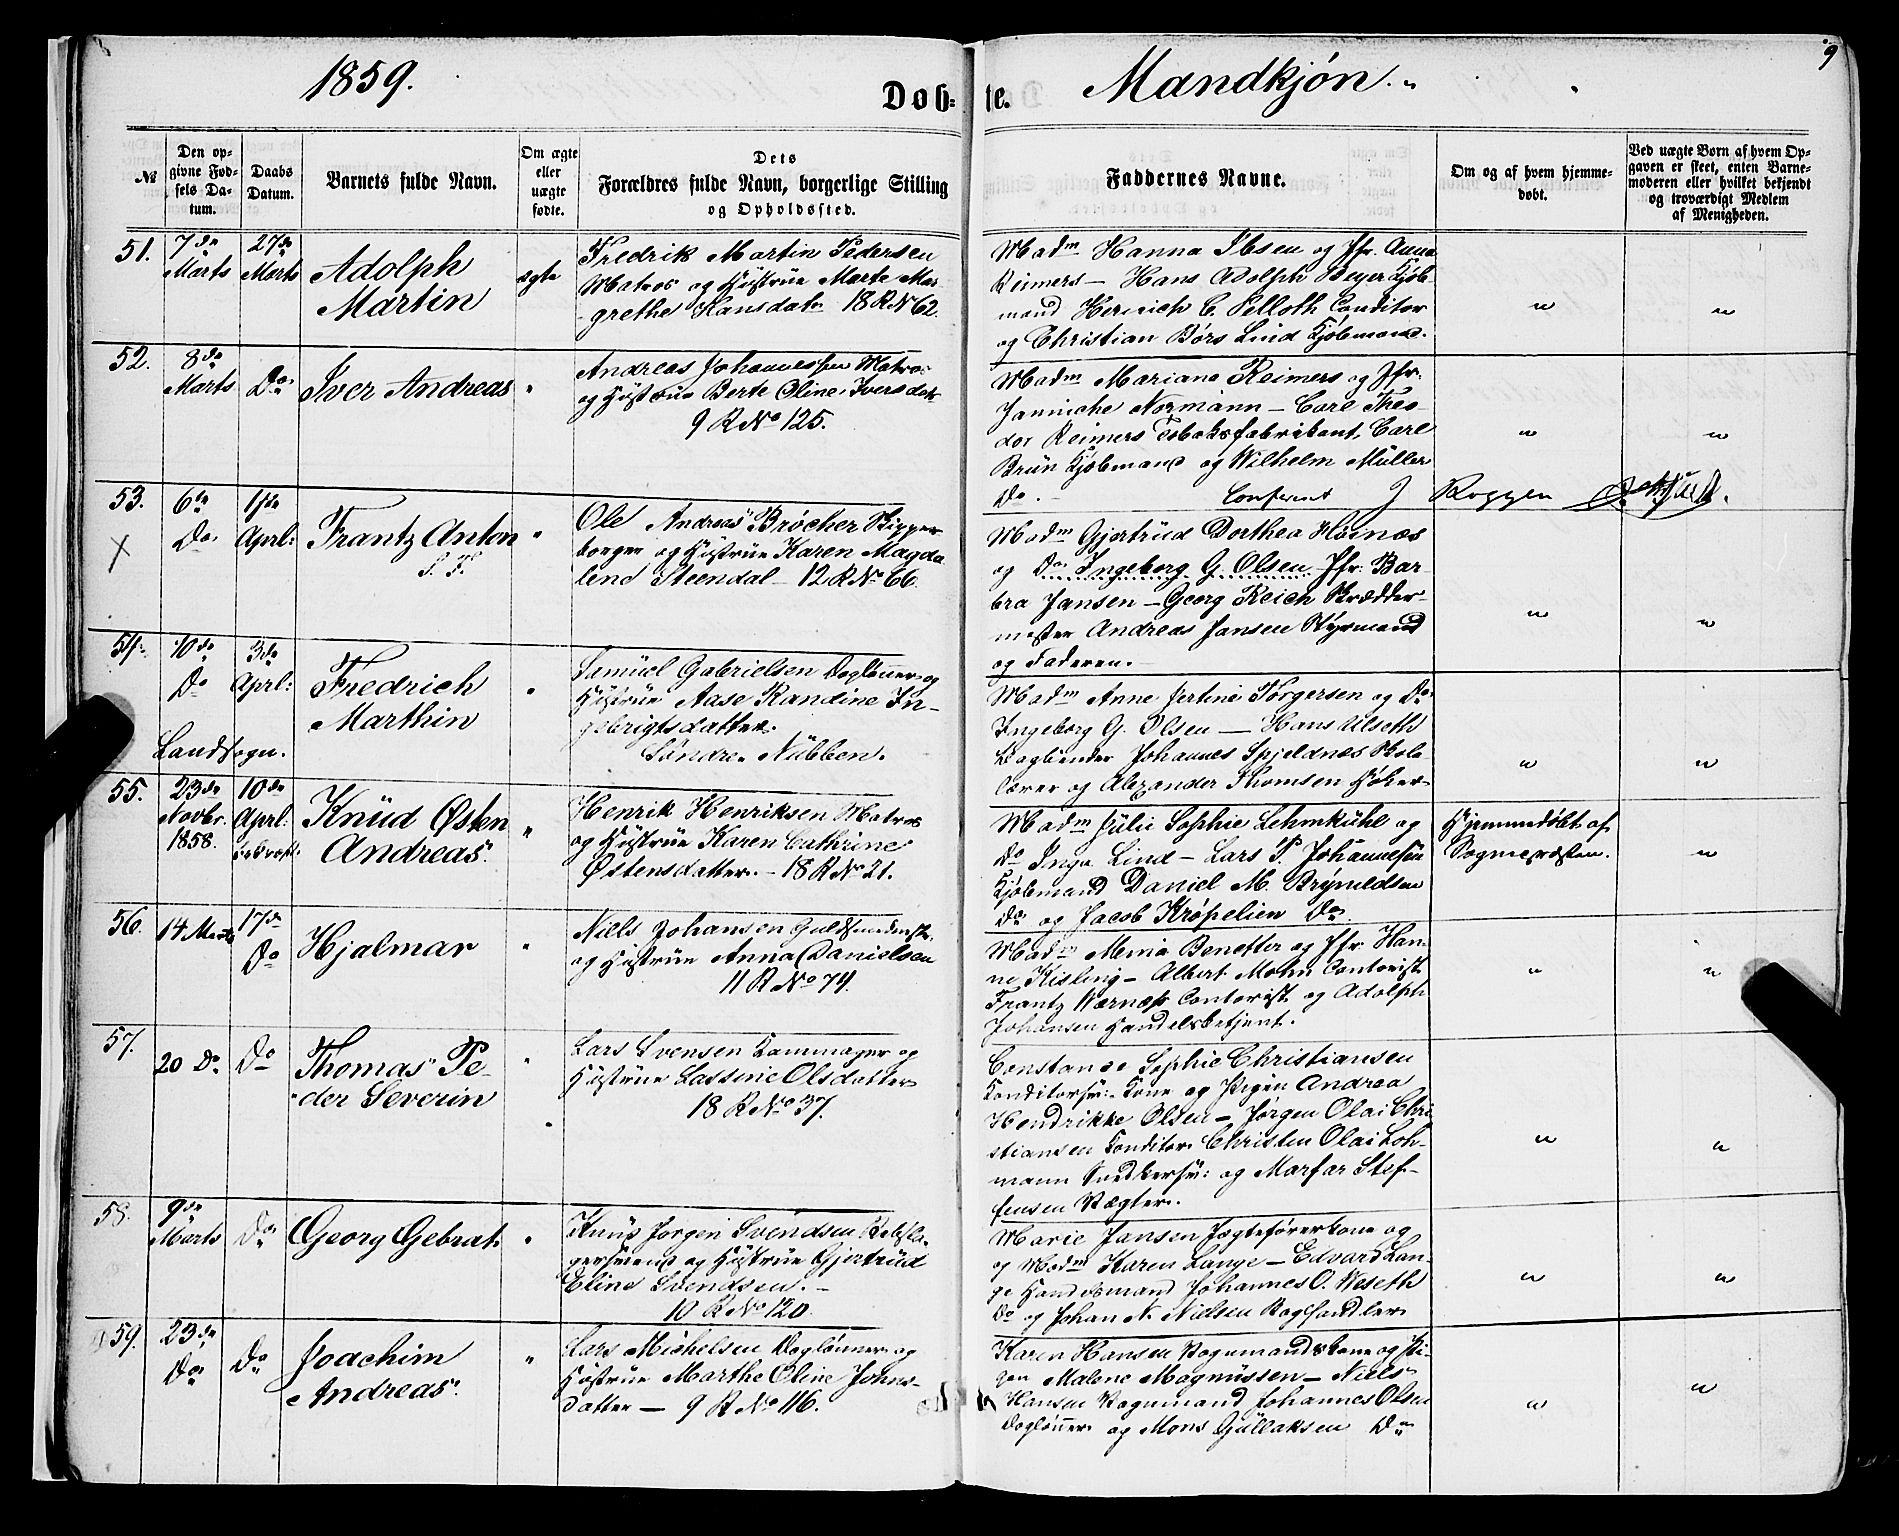 1859.
Døb=
te.
Mandkjøn.
9
№
Den op-
givne Fød-
sels Da-
tum.
Daabs
Datum.
Barnets fulde Navn.
Om ægte
eller
uægte
fødte.
Dets
Forældres fulde Navn, borgerlige Stilling
og Opholdssted.
Faddernes Navne.
Om og af hvem hjemme-
døbt.
Ved uægte Børn af hvem Op-
gaven er skeet, enten Barne-
moderen eller hvilket bekjendt
og troværdigt Medlem
af Menigheden.
51.
7de
Marts
27de
Marts
Adolph
Martin
ægte
Fredrik Martin Pedersen
Matros og Hustrue Marte Mar-
grethe Hansdatr 18 R No 62.
Madm Hanna Ibsen og Jfr. Anna
Reimers — Hans Adolph Meyer Kjøb-
mand Henrich C. Pelloth Conditor
og Christian Børs Lind Kjøbmand.
"
"
52.
8de
Marts
Do
Iver Andreas
"
Andreas Johannessen Matros
og Hustrue Berte Oline Iversdatr
9 R No 125.
Madm Mariane Reimers og Jfr.
Janniche Normann — Carl Theo-
dor Reimers Tobaksfabrikant, Carl
Brun Kjøbmand og Wilhelm Müller
Do. —
"
"
53.
6te
Do
1ste
Aprl:
Frantz Anton
"
Ole Andreas Brøcker Skipper
borger og Hustrue Karen Magda
lene Steendal — 12 R No 66.
Madm Gjertrud Dorthea Høinæs
og Do Ingeborg G. Olsen Jfr: Bar-
bra Jansen — Georg Reich Skrædder-
mester Andreas Jansen Styrmand
og Faderen. —
"
"
54.
10de
Do
3de
Aprl:
Landsogn.
Fredrich
Marthin
"
Samuel Gabrielsen Dagløner og
Hustrue Aase Randine In-
gebrigtsdatter.
Søndre Nubben.
Madm Anne Jertine Torgersen og Do
Ingeborg G. Olsen — Hans Ulseth
Bogbinder Johannes Spjeldnæs Skole
lærer og Alexander Thomsen Høker
"
"
55.
23de
Novbr.
1858.
10de
Aprl:
Knud Østen
Andreas.
"
Henrik Henriksen Matros
og Hustrue Karen Cathrine
Østensdatter. — 18 R No 21.
Madm Julie Sophie Lehmkuhl og
Do Inga Lind — Lars P. Johannesen
Kjøbmand Daniel M. Brynildsen
Do og Jacob Krøpelien Do.
Hjemmedøbt af
Sognepræsten.
"
56.
14 Marts
17de
Do
Hjalmar
"
Niels Johansen Guldsmedmstr.
og Hustrue Anna Danielsen
11 R No 74.
Madm Mena Benetter og Jfr. Han-
ne Kisling — Albert Mohn Contorist
Frantz Wærnes Contorist og Adolph
Johansen Handelsbetjent.
"
"
57.
20 Do
Do
Thomas Pe-
der Severin
"
Lars Svensen Kammager og
Hustrue Lassine Olsdatter
18 R No 37.
Constance Sophie Christiansen
Konditorsv: Kone og Pigen Andrea
Hendrikke Olsen — Jørgen Olai Chri-
stiansen Konditor Christen Olai Loh-
mann Snedkersv: og Marfar Stef-
fensen Vægter.
"
"
58.
9de
Marts
Do
Georg Gebrat
"
Knud Jørgen Svendsen Rebsla-
gersvend og Hustrue Gjertrud
Eline Svendsen. —
10 R No 120.
Marie Jansen Jagtførerkone og
og Madm Karen Lange — Edvard Lan-
ge Handelsmand Johannes O. Weseth
Do og Johan N. Nielsen Boghandler
"
"
59.
23de
Do
Do
Joachim
Andreas.
"
Lars Michelsen Dagløner og
Hustrue Marthe Oline Johns-
datter — 9 R No 116.
Karen Hansen Vognmandskone og Pi-
gen Malene Magnussen — Niels
Hansen Vognmand Johannes Olsen
Dagløner og Mons Gullaksen Do
"
"